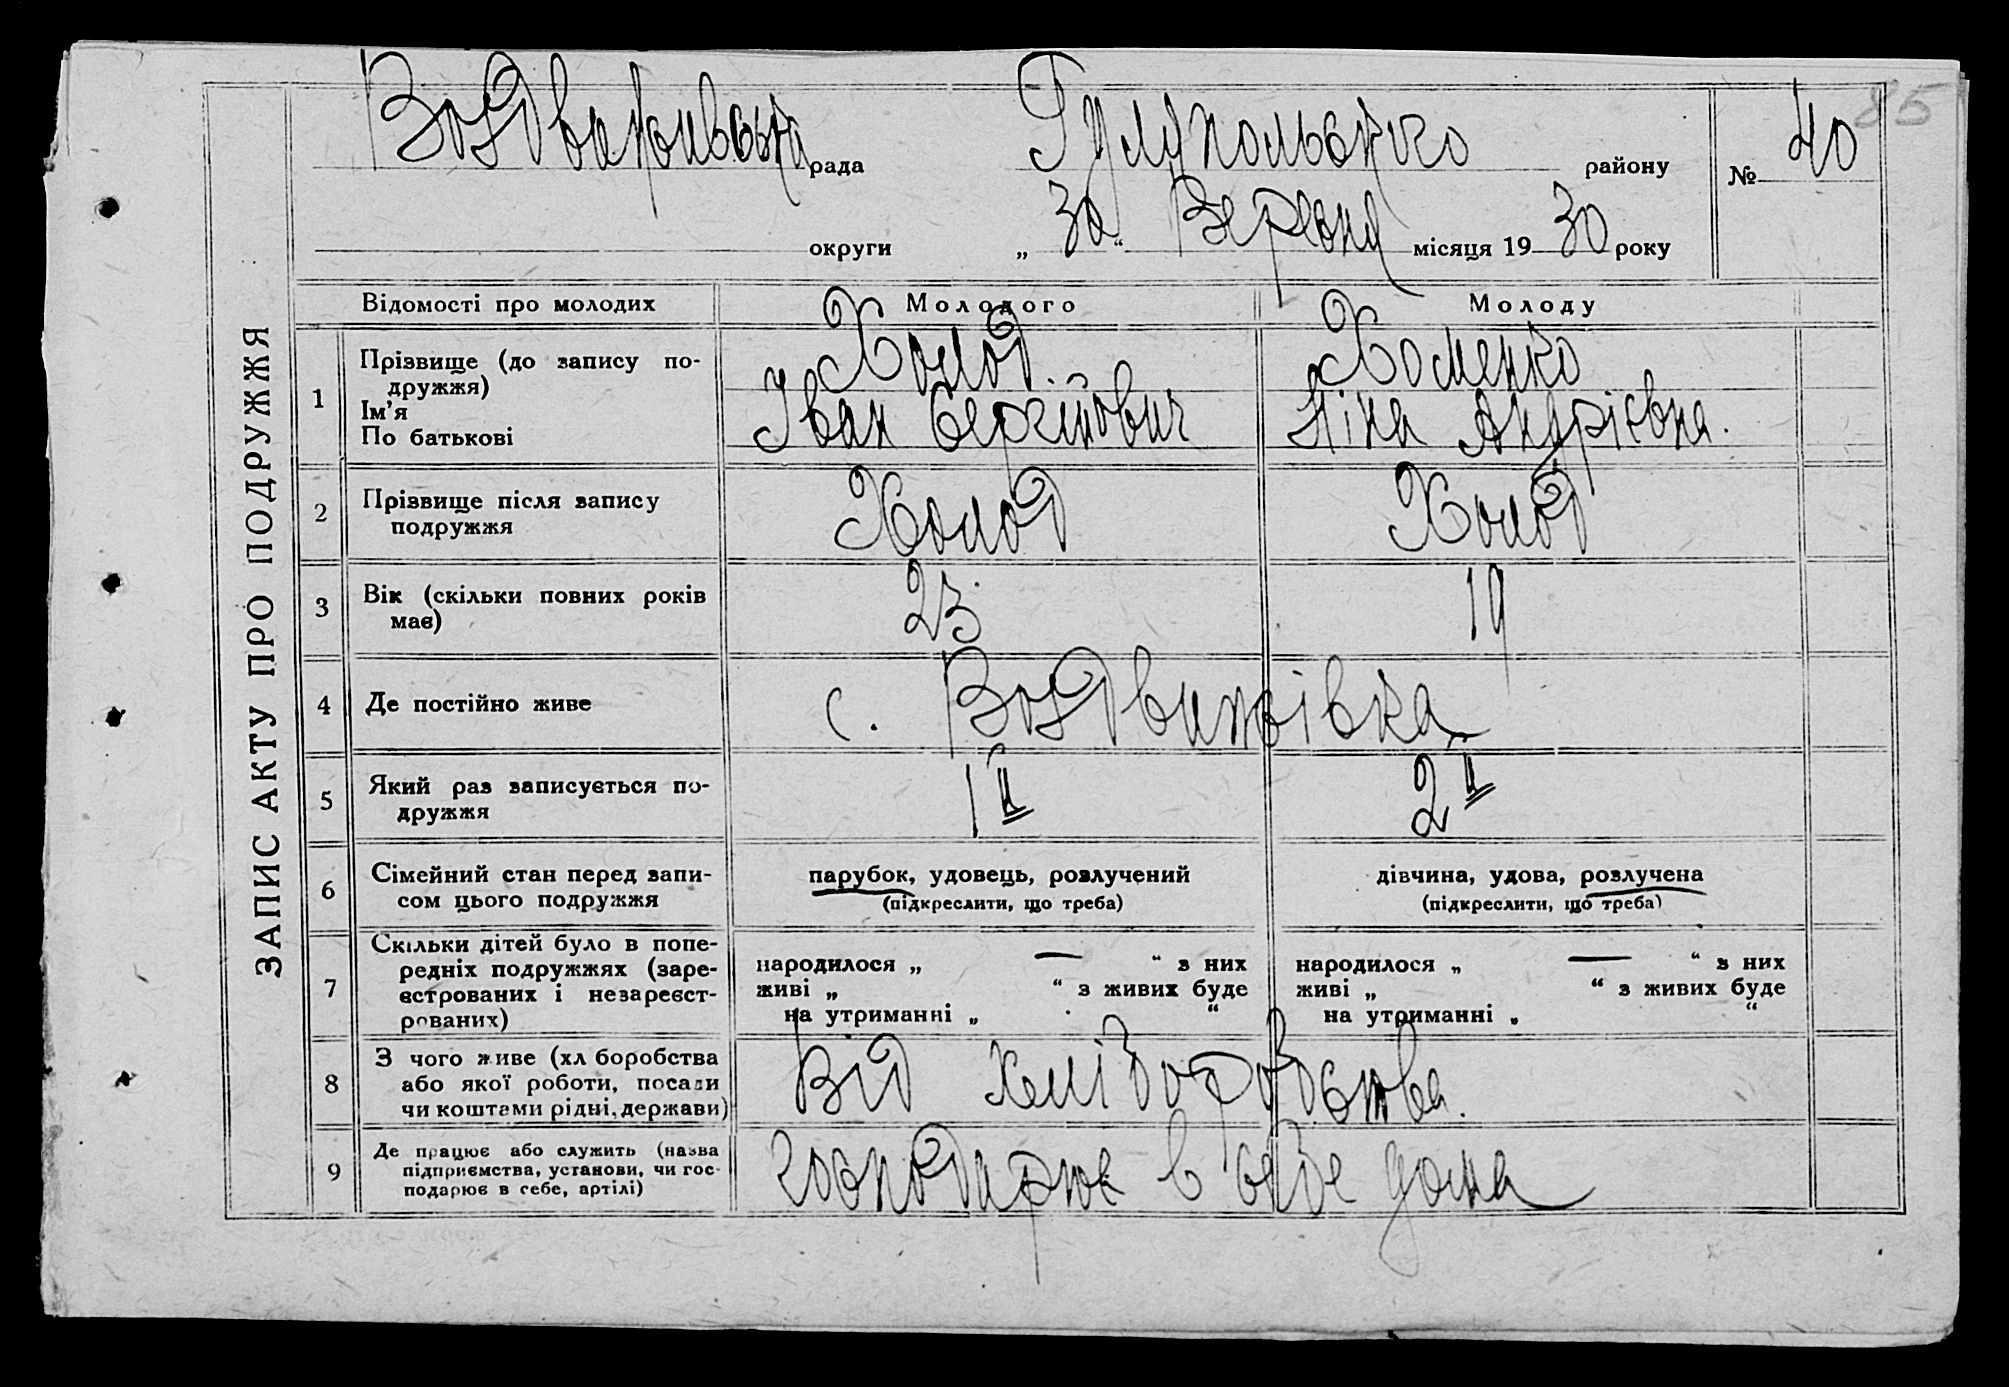 85
Воздвиживська рада Гуляпольского району № 40
округи „ 30 “ Вересня місяця 19 30 року
ЗАПИС АКТУ ПРО ПОДРУЖЖЯ
Відомості про молодих Молодого Молоду
1 Прізвище (до запису по- Холод Хоменко
дружжя)
Ім’я Іван Сергійович Ніна Андрієвна.
По батькові
2 Прізвище після запису Холод Холод
подружжя
3 Вік (скільки повних років 23 19
має)
4 Де постійно живе с. Воздвижівка
5 Який раз записується по- 1й 2й
дружжя
6 Сімейний стан перед запи- парубок, удовець, розлучений дівчина, удова, розлучена
сом цього подружжя (підкреслити, що треба) (підкреслити, що треба)
7 Скільки дітей було в попе-
редніх подружжях (заре- народилося „ — “ з них народилося „ — “ з них
єстрованих і незареєст- живі „ “ з живих буде живі „ “ з живих буде
рованих) на утриманні „ “ на утриманні „ “
8 З чого живе (хліборобства Від хліборобства.
або якої роботи, посади
чи коштами рідні, держави)
9 Де працює або служить (назва господарює в себе дома
підприємства, установи, чи гос-
подарює в себе, артілі)